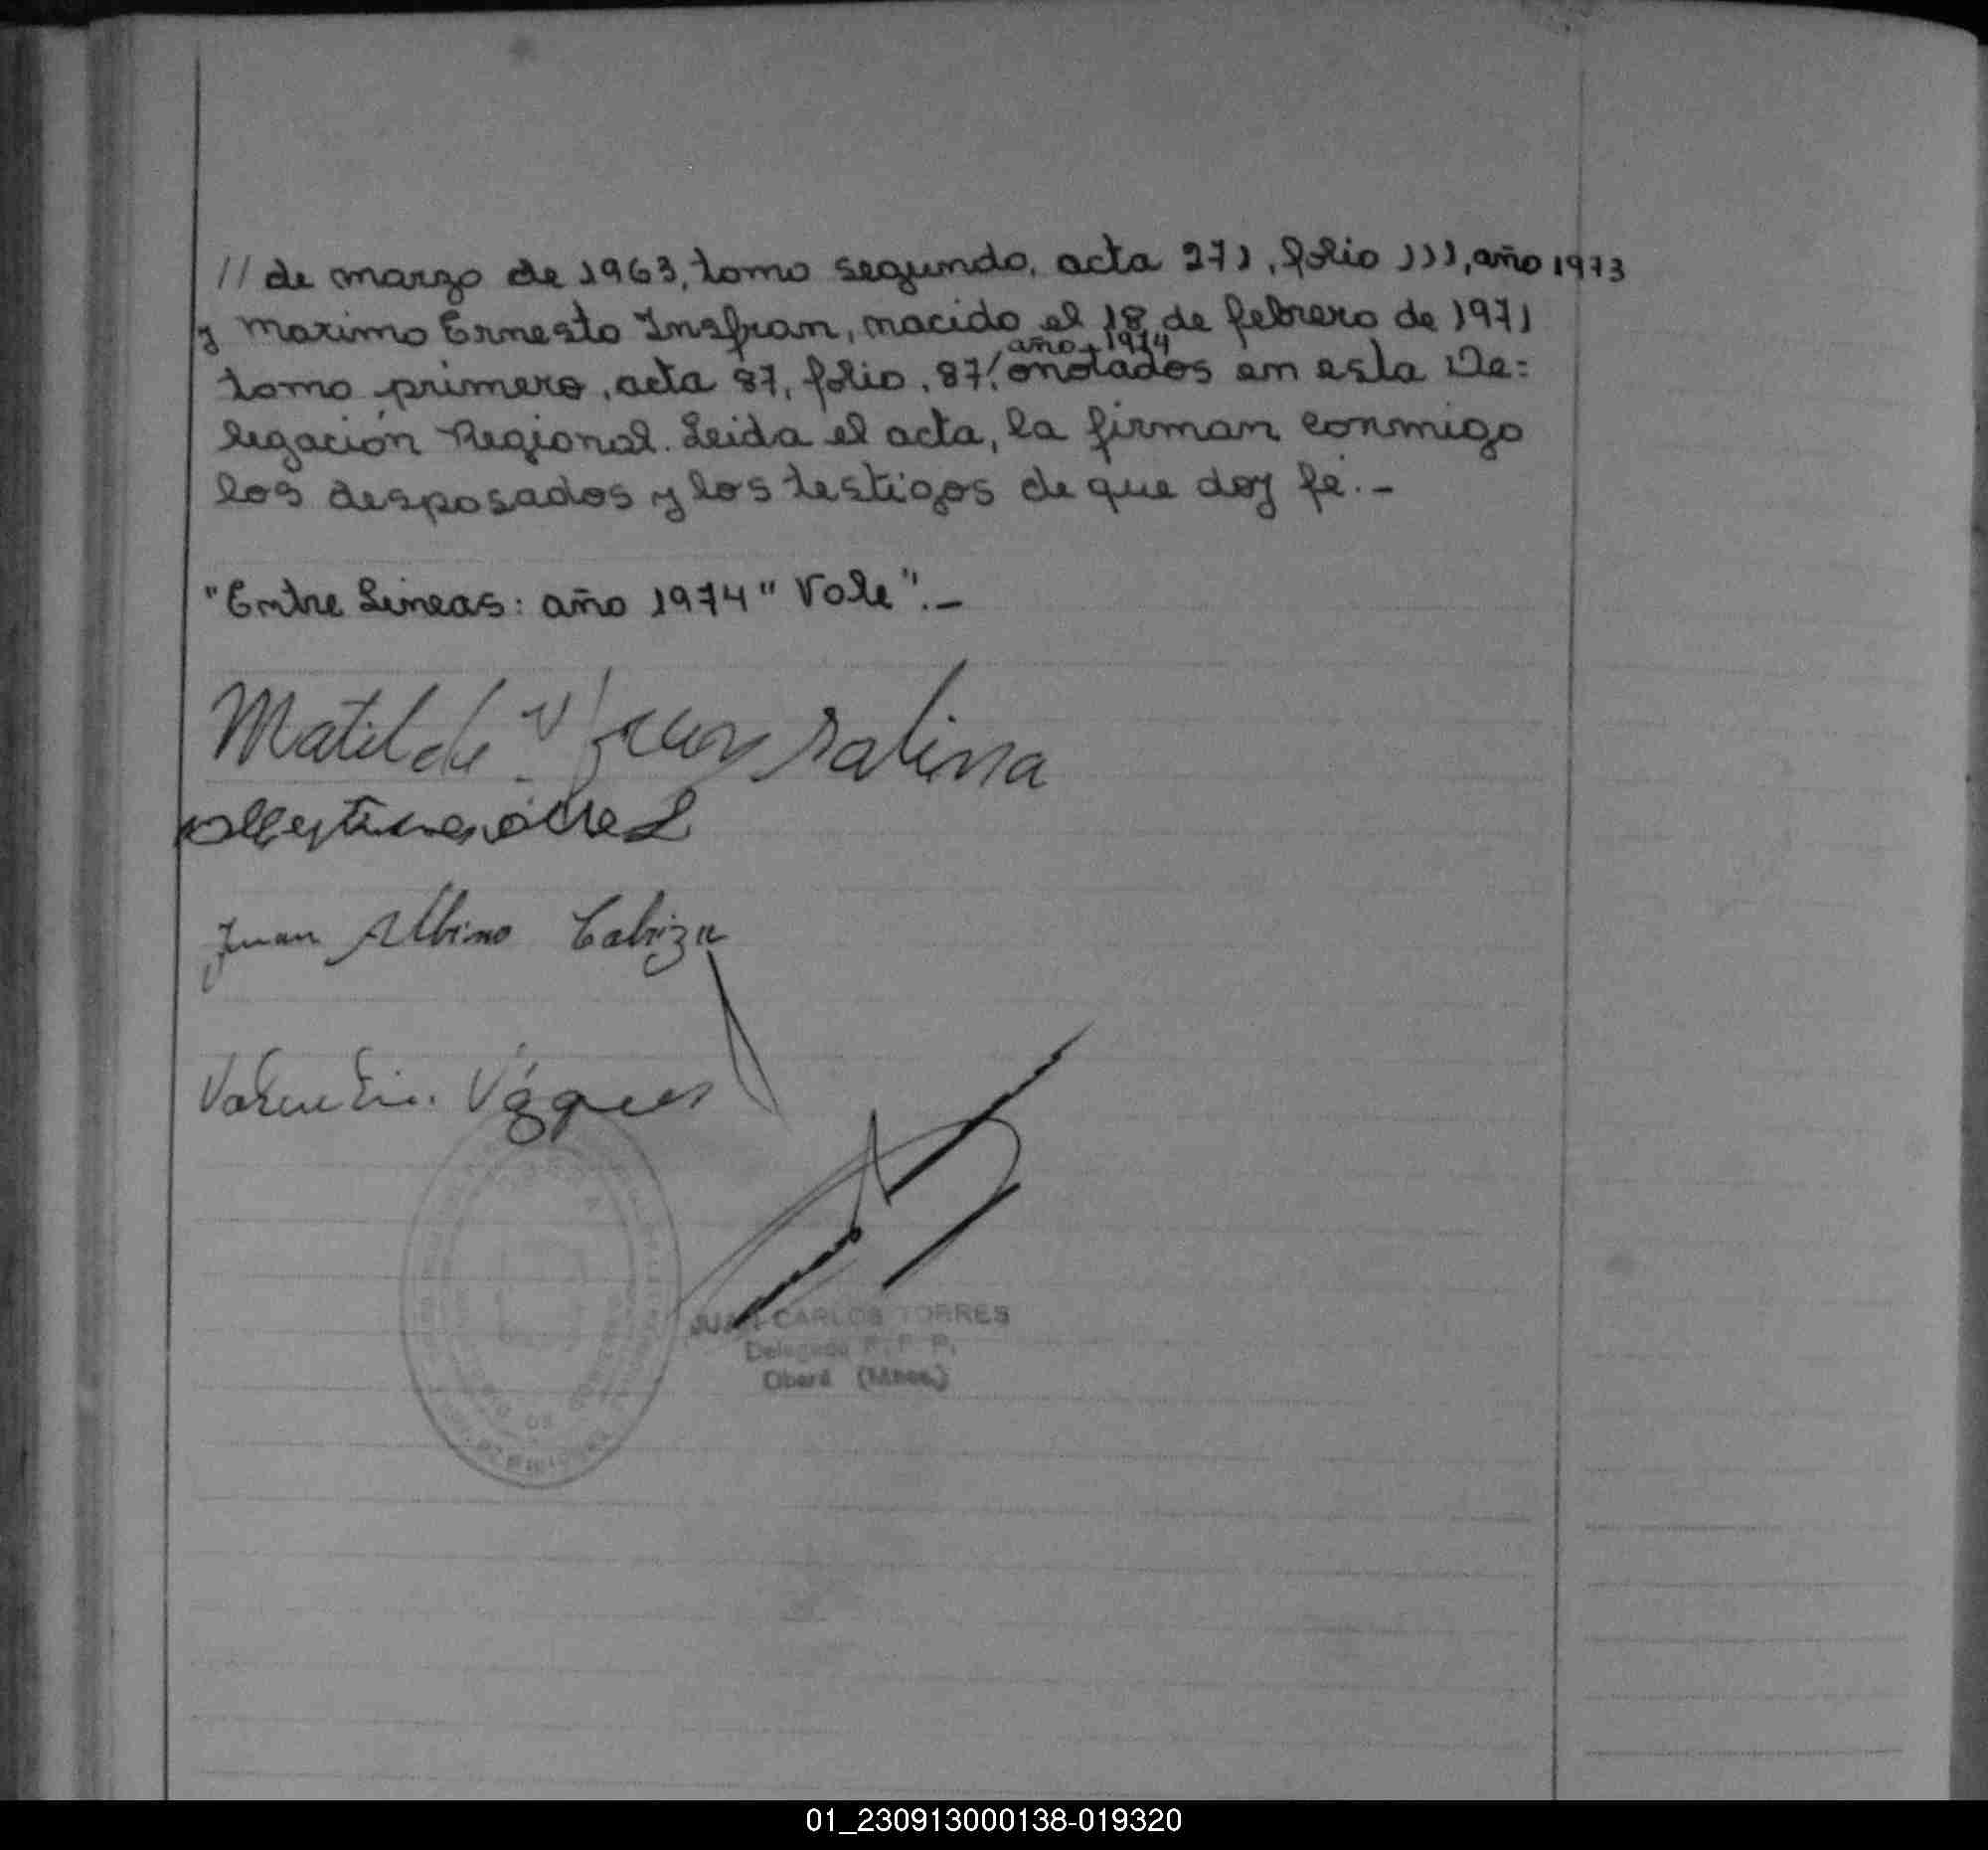 // de marzo de 1963, tomo segundo, acta 271, folio 111, año 1973
y Maximo Ernesto Insfran, nacido el 18 de febrero de 1971
año 1974
tomo primero, acta 87, folio, 87, anotados en esta De=
legación Regional. Leida el acta, la firman conmigo
los desposados y los testigos de que doy fé.-
"Entre Lineas: año 1974" Vale".-
Matilde salina
Juan Albino Cabriza
Valentin. Vázques
JUAN CARLOS TORRES
Delegado R. P. P.
Oberá (Mnes.)
01_230913000138-019320